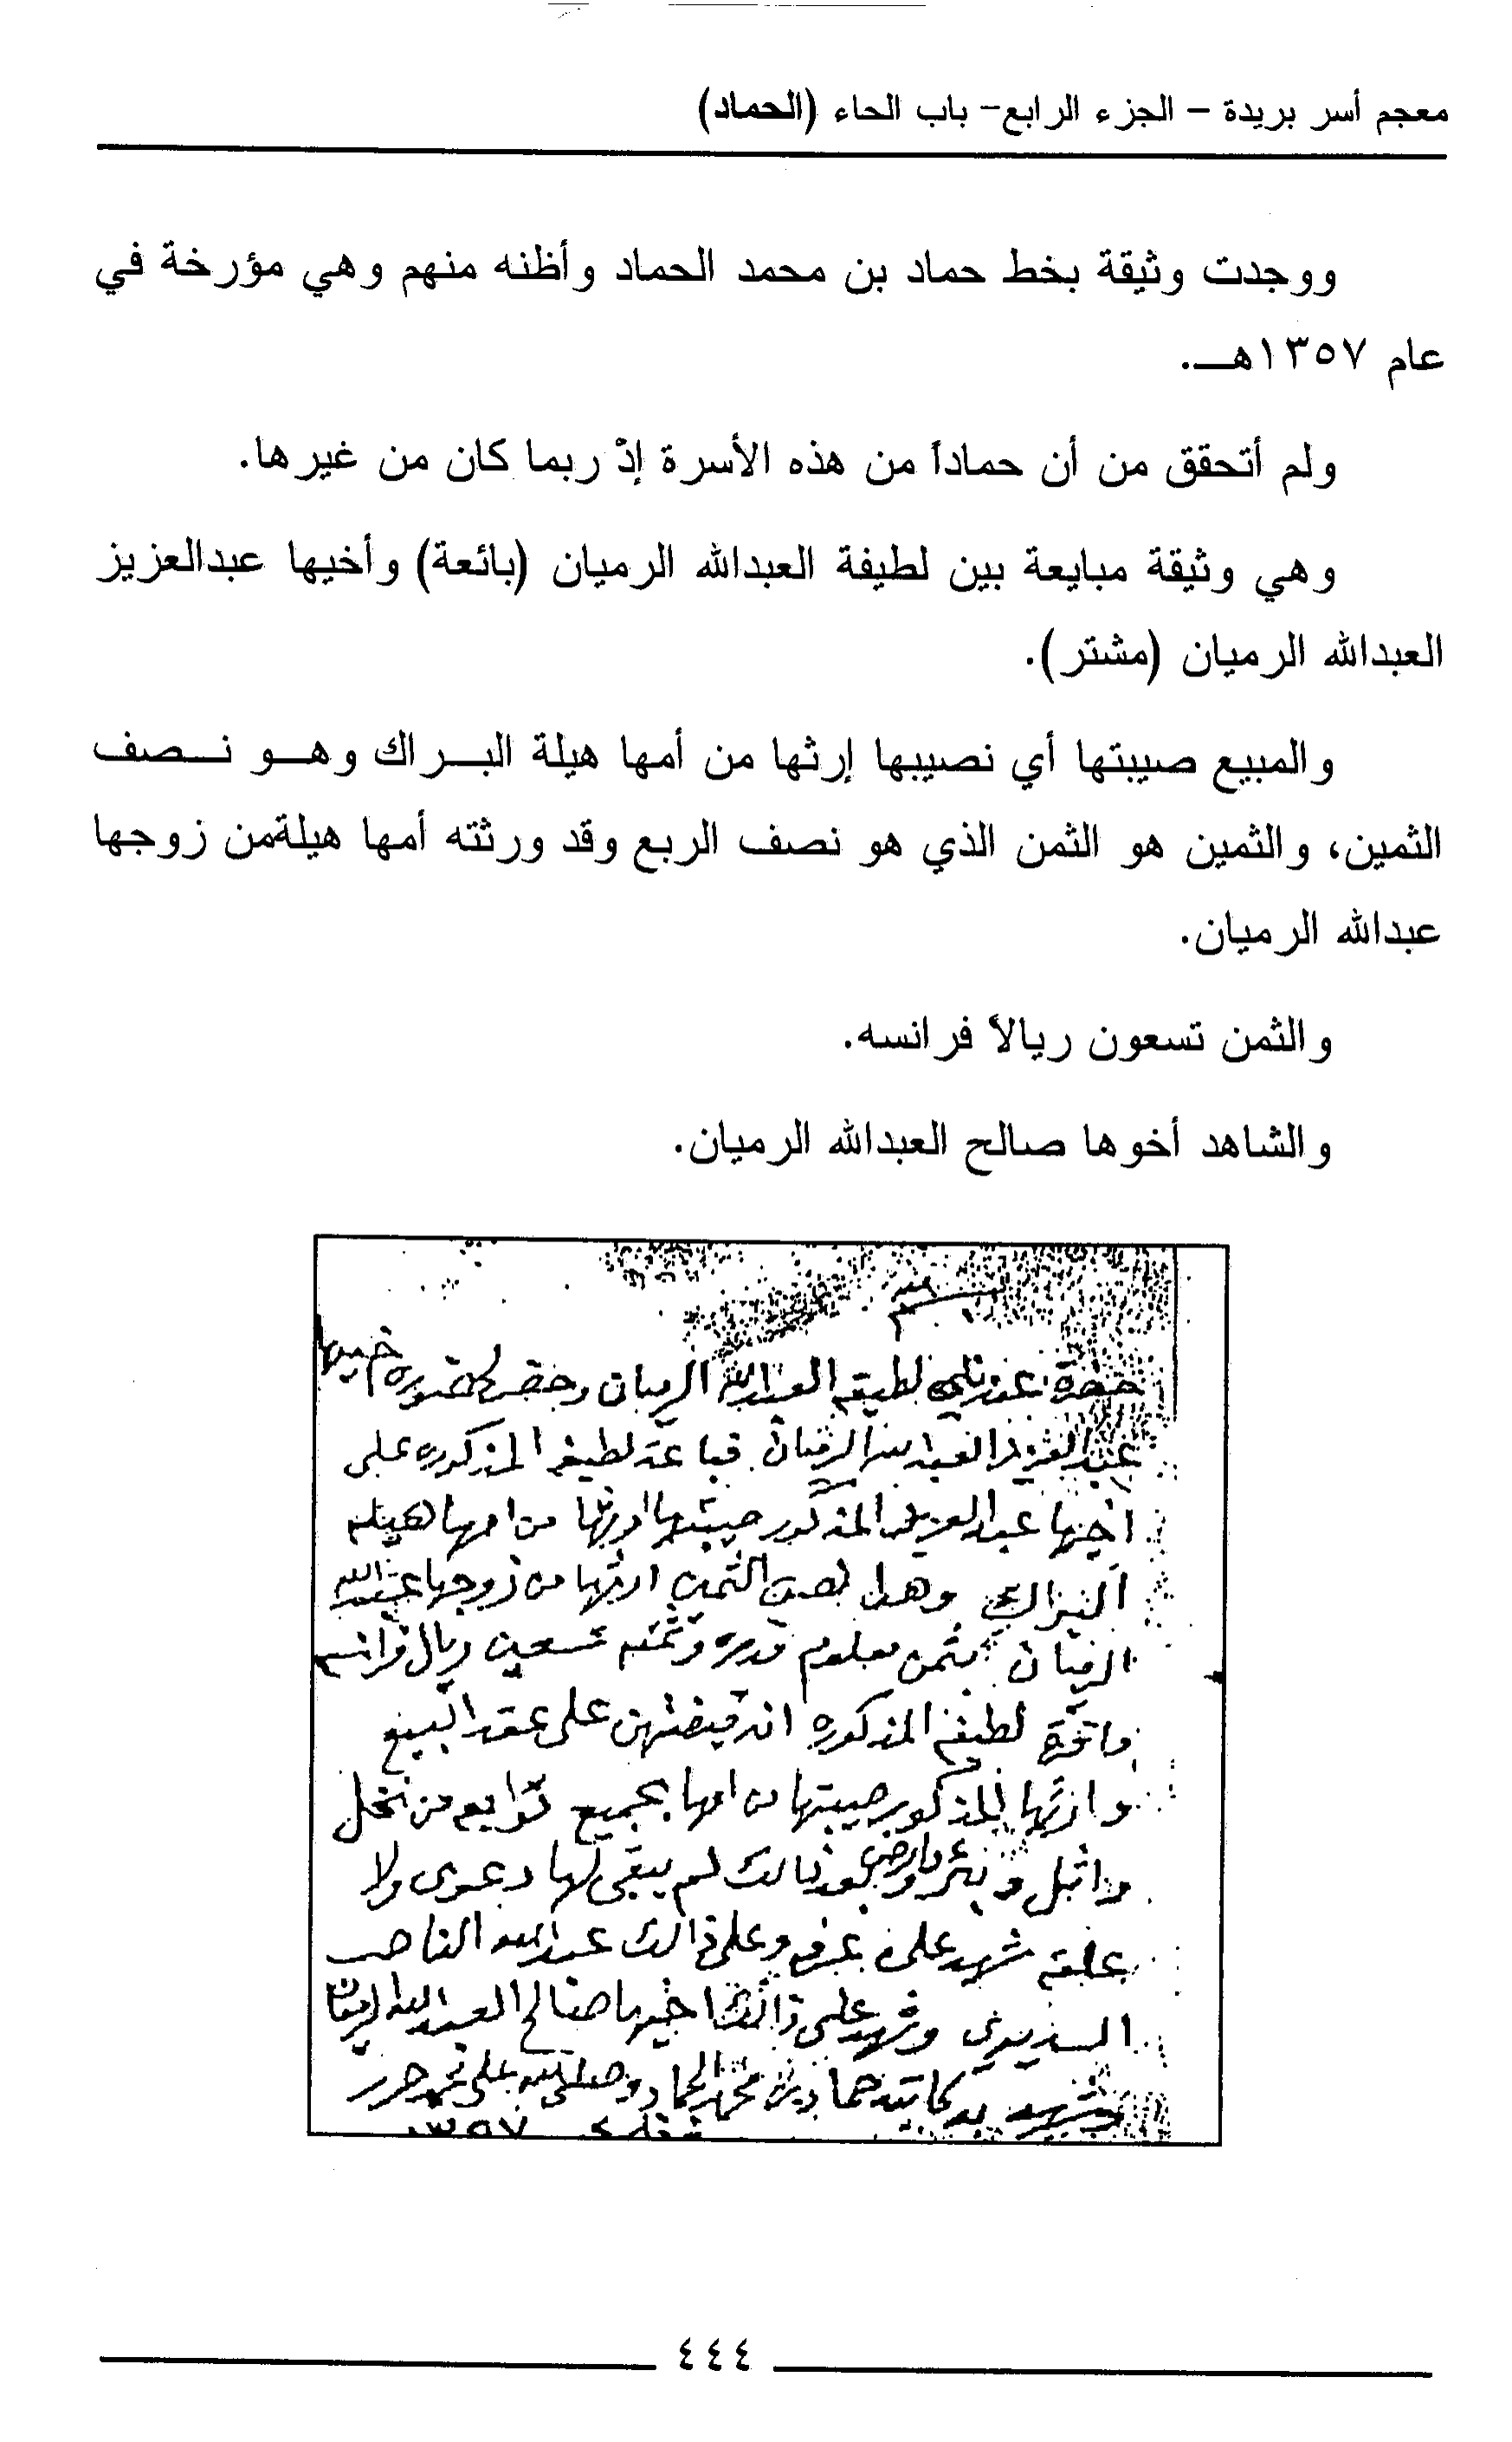 معجم أسر بريدة – الجزء الرابع– باب الحاء (الحماد)
ووجدت وثيقة بخط حماد بن محمد الحماد وأظنه منهم وهي مؤرخة في
عام ١٣٥٧هـ.
ولم أتحقق من أن حماداً من هذه الأسرة إذْ ربما كان من غيرها.
وهي وثيقة مبايعة بين لطيفة العبدالله الرميان (بائعة) وأخيها عبدالعزيز
العبدالله الرميان (مشتر).
والمبيع صيبتها أي نصيبها إرثها من أمها هيلة البراك وهو نصف
الثمين، والثمين هو الثمن الذي هو نصف الربع وقد ورثته أمها هيلةمن زوجها
عبدالله الرميان.
والثمن تسعون ريالاً فرانسه.
والشاهد أخوها صالح العبدالله الرميان.
لطيفه العبدالله الرميان وحضر
عبدالعزيز العبدالله الرميان فباعة لطيفه المذكوره على
اخيها عبدالعزيز المذكور صيبتها ارثها من امها هيله
البراك وهو نصف الثمين ارثها من زوجها عبدالله
الرميان بثمن معلوم قدره وثمنه تسعين ريال فرانسه
لطيفه المذكوره على عقد البيع
للمذكور صيبتها من امها بجميع توابعه من نخل
واثل لم يبقى لها دعوى ولا
علقه شهد على وعلى ذالك عبدالله الناصر
وشهد على ذالك اخيها صالح العبدالله الرميان
وشهد به كاتبه حماد بن محمد الحماد وصلى الله على محمد حرر
١٣٥٧
٤٤٤